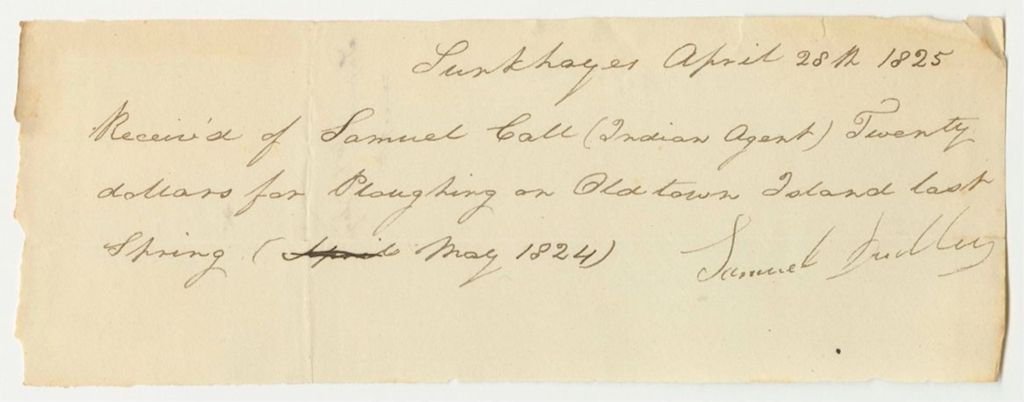 Sunkhayes April 28th 1825
Receiv'd of Samuel Call (Indian Agent) Twenty
dollars for Ploughing on Oldtown Island last
Spring (April May 1824) Samuel Dudley